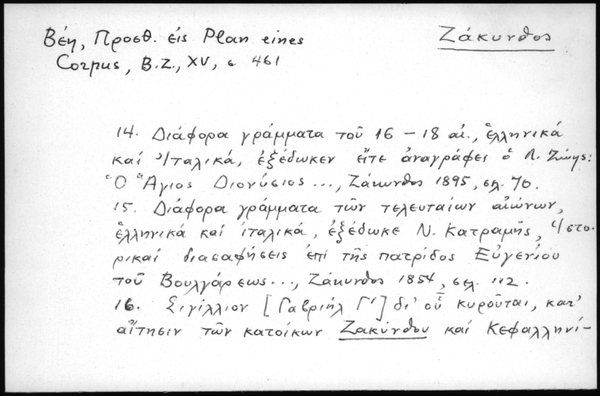 Βέη, Προσθ. εἰς Plan eines
Ζάκυνθος
Corpus, B.Z., XV, σ. 461
14. Διάφορα γράμματα τοῦ 16 – 18 αἰ., ἑλληνικά
καί Ἰταλικά, ἐξέδωκεν εἴτε ἀναγράφει ὁ Λ. Ζώης:
Ὁ Ἅγιος Διονύσιος ..., Ζάκυνθος 1895, σελ. 70.
15. Διάφορα γράμματα τῶν τελευταίων αἰώνων,
ἑλληνικά καί ἰταλικά, ἐξέδωκε Ν. Κατραμῆς, Ἱστο-
ρικαί διασαφήσεις ἐπί τῆς πατρίδος Εὐγενίου
τοῦ Βουλγάρεως..., Ζάκυνθος 1854, σελ. 112.
16. Σιγίλλιον [Γαβριήλ Γ'] δι' οὗ κυροῦται, κατ'
αἴτησιν τῶν κατοίκων Ζακύνθου καί Κεφαλληνί-